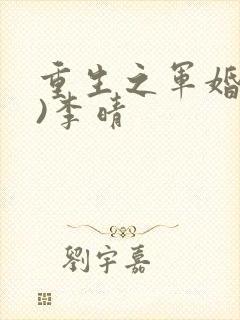 重生之军婚
)李晴
劉宇嘉